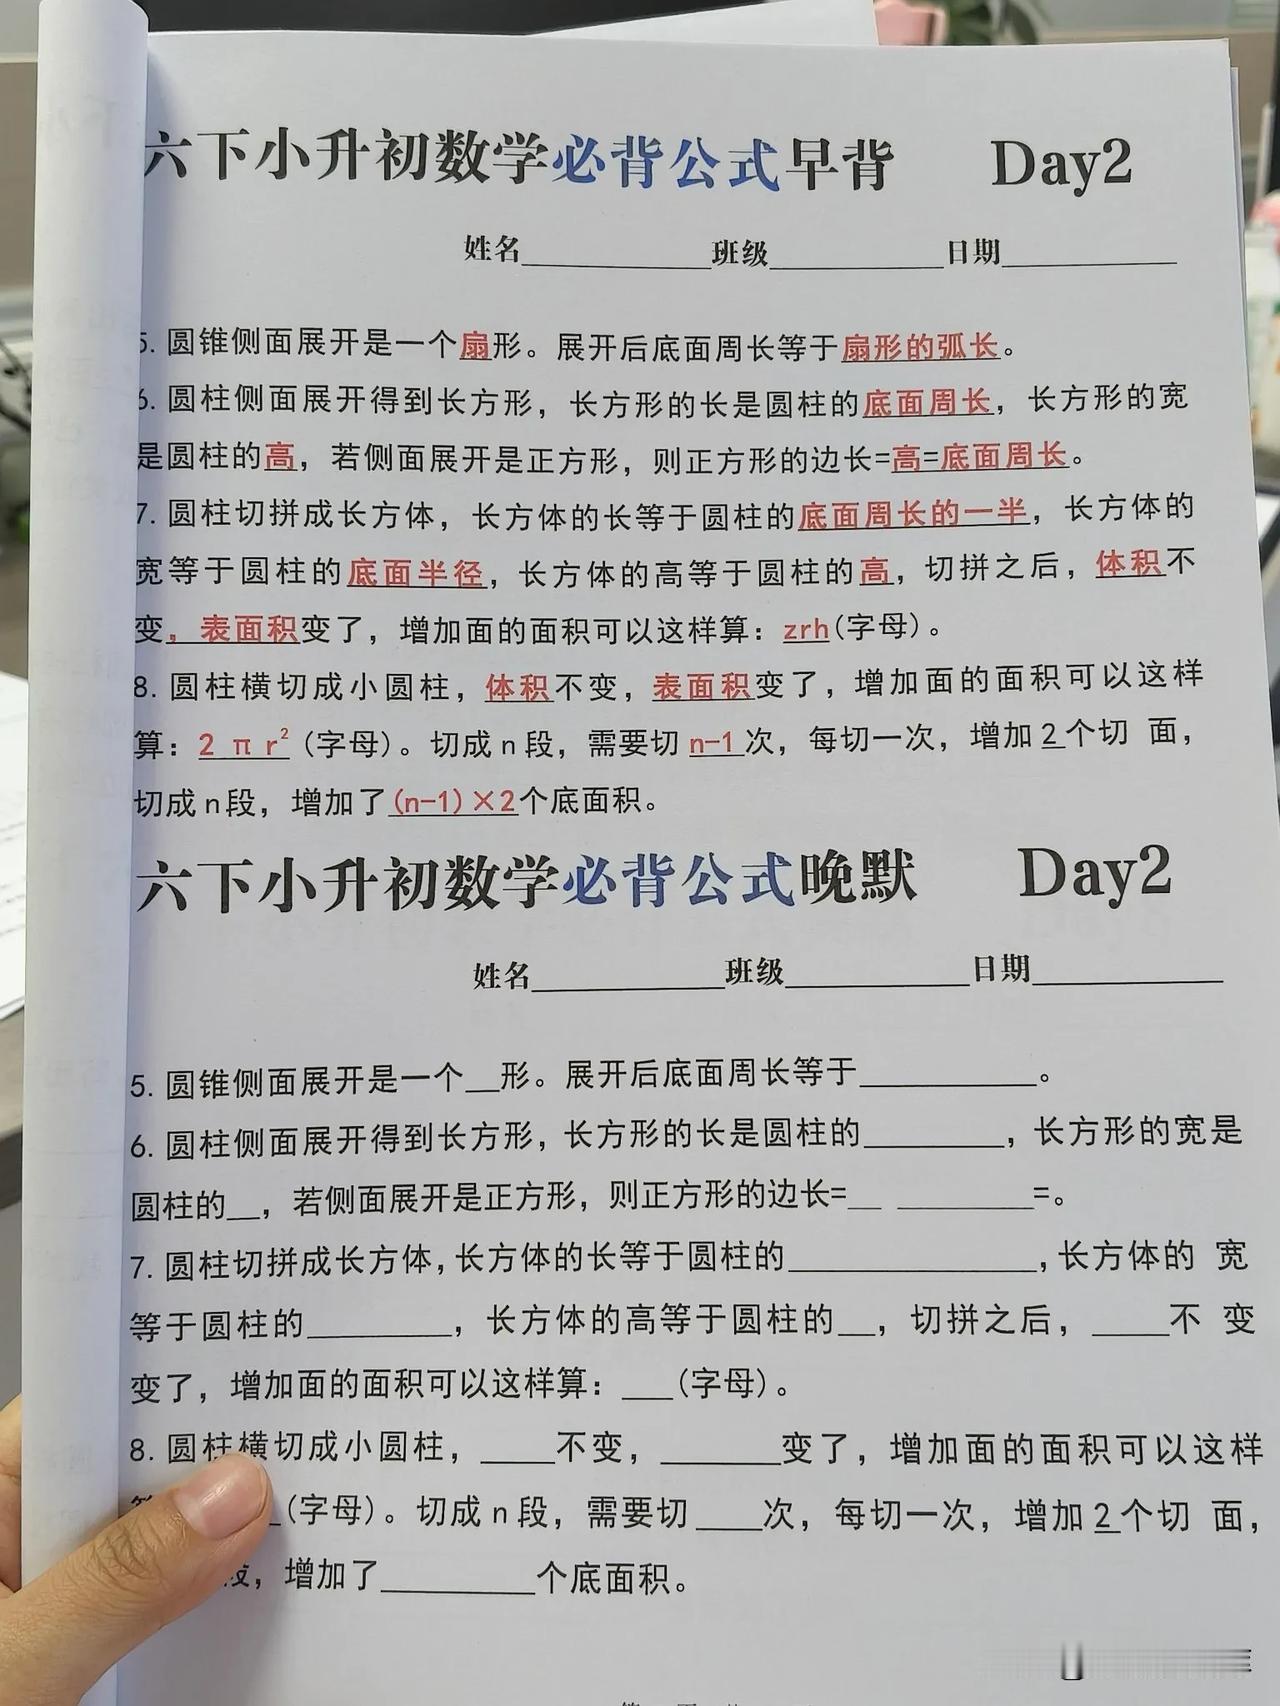 六下小升初数学必背公式早背 Day2
姓名____________班级____________日期____________
5. 圆锥侧面展开是一个扇形。展开后底面周长等于扇形的弧长。
6. 圆柱侧面展开得到长方形，长方形的长是圆柱的底面周长，长方形的宽
是圆柱的高，若侧面展开是正方形，则正方形的边长=高=底面周长。
7. 圆柱切拼成长方体，长方体的长等于圆柱的底面周长的一半，长方体的
宽等于圆柱的底面半径，长方体的高等于圆柱的高，切拼之后，体积不
变，表面积变了，增加面的面积可以这样算：zrh(字母)。
8. 圆柱横切成小圆柱，体积不变，表面积变了，增加面的面积可以这样
算：2 π r²(字母)。切成n段，需要切n-1次，每切一次，增加2个切 面，
切成n段，增加了(n-1)×2个底面积。
六下小升初数学必背公式晚默 Day2
姓名____________班级____________日期____________
5. 圆锥侧面展开是一个__形。展开后底面周长等于___________。
6. 圆柱侧面展开得到长方形，长方形的长是圆柱的________，长方形的宽是
圆柱的__，若侧面展开是正方形，则正方形的边长=__ ________=。
7. 圆柱切拼成长方体，长方体的长等于圆柱的______________，长方体的 宽
等于圆柱的________，长方体的高等于圆柱的__，切拼之后，____不 变
变了，增加面的面积可以这样算：___(字母)。
8. 圆柱横切成小圆柱，____不变，______变了，增加面的面积可以这样
(字母)。切成n段，需要切____次，每切一次，增加2个切 面，
段，增加了_________个底面积。